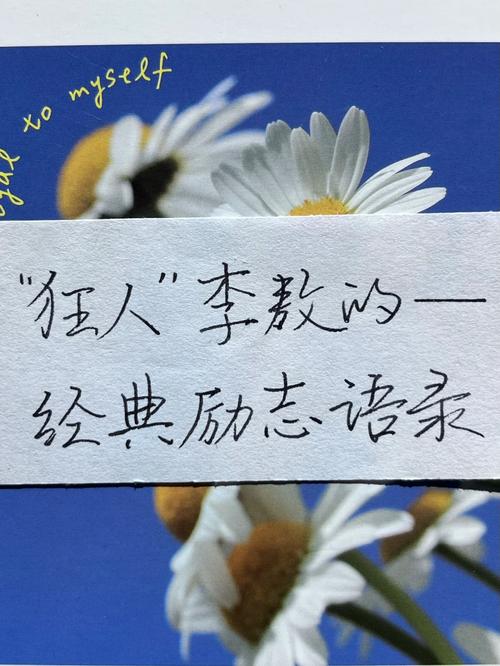 to myself
"狂人"李敖的一
经典励志语录